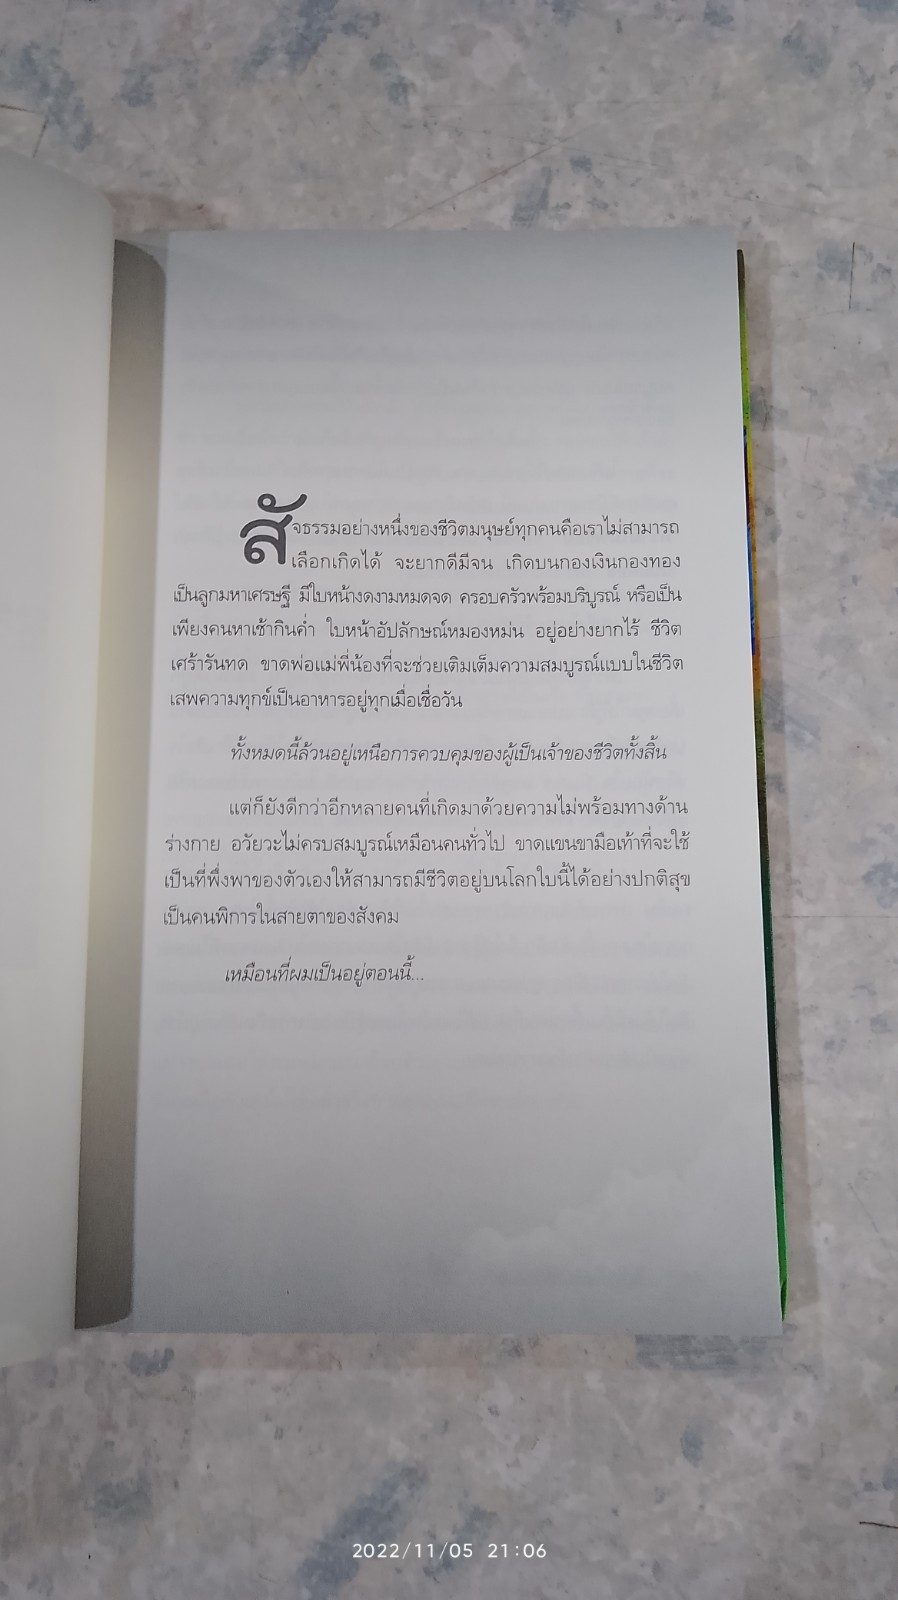 สัจธรรมอย่างหนึ่งของชีวิตมนุษย์ทุกคนคือเราไม่สามารถ
เลือกเกิดได้ จะยากดีมีจน เกิดบนกองเงินกองทอง
เป็นลูกมหาเศรษฐี มีใบหน้างดงามหมดจด ครอบครัวพร้อมบริบูรณ์ หรือเป็น
เพียงคนหาเช้ากินค่ำ ใบหน้าอัปลักษณ์หมองหม่น อยู่อย่างยากไร้ ชีวิต
เศร้ารันทด ขาดพ่อแม่พี่น้องที่จะช่วยเติมเต็มความสมบูรณ์แบบในชีวิต
เสพความทุกข์เป็นอาหารอยู่ทุกเมื่อเชื่อวัน
ทั้งหมดนี้ล้วนอยู่เหนือการควบคุมของผู้เป็นเจ้าของชีวิตทั้งสิ้น
แต่ก็ยังดีกว่าอีกหลายคนที่เกิดมาด้วยความไม่พร้อมทางด้าน
ร่างกาย อวัยวะไม่ครบสมบูรณ์เหมือนคนทั่วไป ขาดแขนขามือเท้าที่จะใช้
เป็นที่พึ่งพาของตัวเองให้สามารถมีชีวิตอยู่บนโลกใบนี้ได้อย่างปกติสุข
เป็นคนพิการในสายตาของสังคม
เหมือนที่ผมเป็นอยู่ตอนนี้...
2022/11/05 21:06